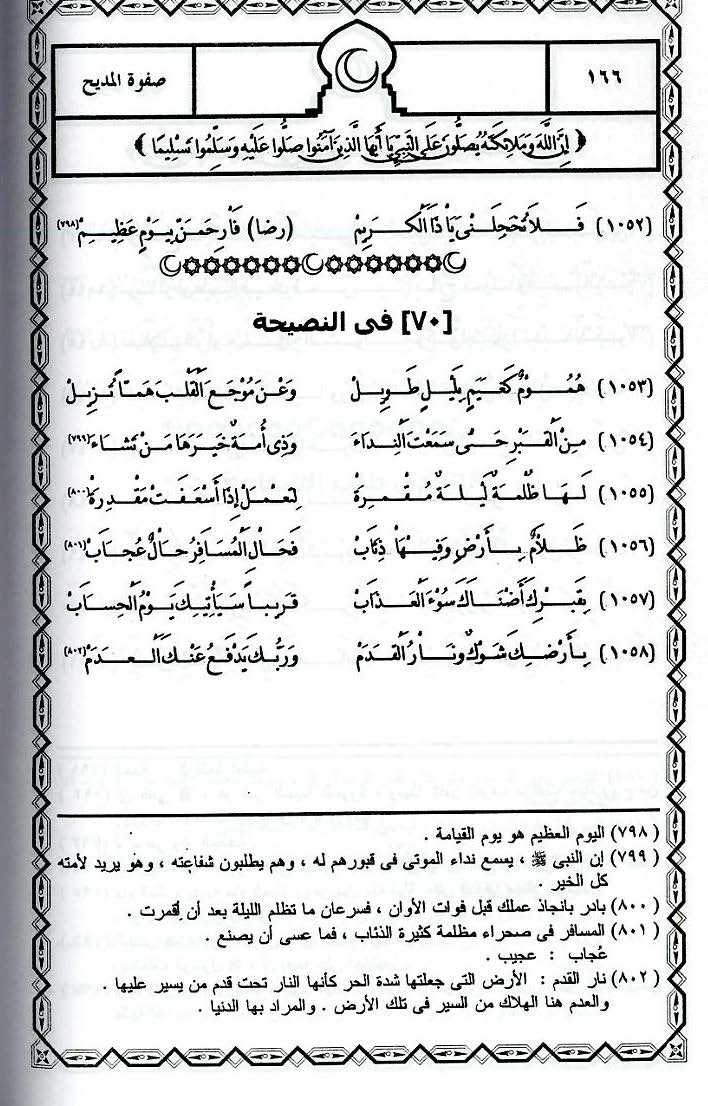 ١٦٦
صفوة المديح
﴿ إِنَّ اللَّهَ وَمَلَائِكَتَهُ يُصَلُّونَ عَلَى النَّبِيِّ يَا أَيُّهَا الَّذِينَ آمَنُوا صَلُّوا عَلَيْهِ وَسَلِّمُوا تَسْلِيمًا ﴾
(١٠٥٢) فَلَا تُخْجِلَنِّي يَا ذَا الْكَرِيمْ (رضا) فَارْحَمَنْ يَوْمٍ عَظِيمْ (٧٩٨)
[٧٠] فى النصيحة
(١٠٥٣) هُمُومٌ كَغَيْمٍ بِلَيْلٍ طَوِيلْ وَعَنْ مُوْجَعِ الْقَلْبِ هَمًّا تُزِيلْ
(١٠٥٤) مِنَ الْقَبْرِ حَتَّى سَمَعْتَ النِّدَاءَ وَذِى أُمَةٌ خَيْرَهَا مَنْ تَشَاءْ (٧٩٩)
(١٠٥٥) لَهَا ظُلْمَةٌ لَيْلَةٌ مُقْمِرَةْ لِتَعْمَلْ إِذَا أَسْعَفَتْ مَقْدِرَةْ (٨٠٠)
(١٠٥٦) ظَلَامٌ بِأَرْضٍ وَفِيهَا ذِئَابْ فَحَالُ الْمُسَافِرُ حَالٌ عُجَابْ (٨٠١)
(١٠٥٧) بِقَبْرِكَ أَضْنَاكَ سُوْءُ الْعَذَابْ قَرِيباً سَيَأْتِيكَ يَوْمُ الْحِسَابْ
(١٠٥٨) بِأَرْضِكَ شَوْكٌ وَنَارُ الْقَدَمْ وَرَبُّكَ يَدْفَعُ عَنْكَ الْعَدَمْ (٨٠٢)
( ٧٩٨ ) اليوم العظيم هو يوم القيامة .
( ٧٩٩ ) إن النبى ﷺ ، يسمع نداء الموتى فى قبورهم له ، وهم يطلبون شفاعته ، وهو يريد لأمته
كل الخير .
( ٨٠٠ ) بادر بانجاذ عملك قبل فوات الأوان ، فسرعان ما تظلم الليلة بعد أن أقمرت .
( ٨٠١ ) المسافر فى صحراء مظلمة كثيرة الذئاب ، فما عسى أن يصنع .
عُجاب : عجيب .
( ٨٠٢ ) نار القدم : الأرض التى جعلتها شدة الحر كأنها النار تحت قدم من يسير عليها .
والعدم هنا الهلاك من السير فى تلك الأرض . والمراد بها الدنيا .